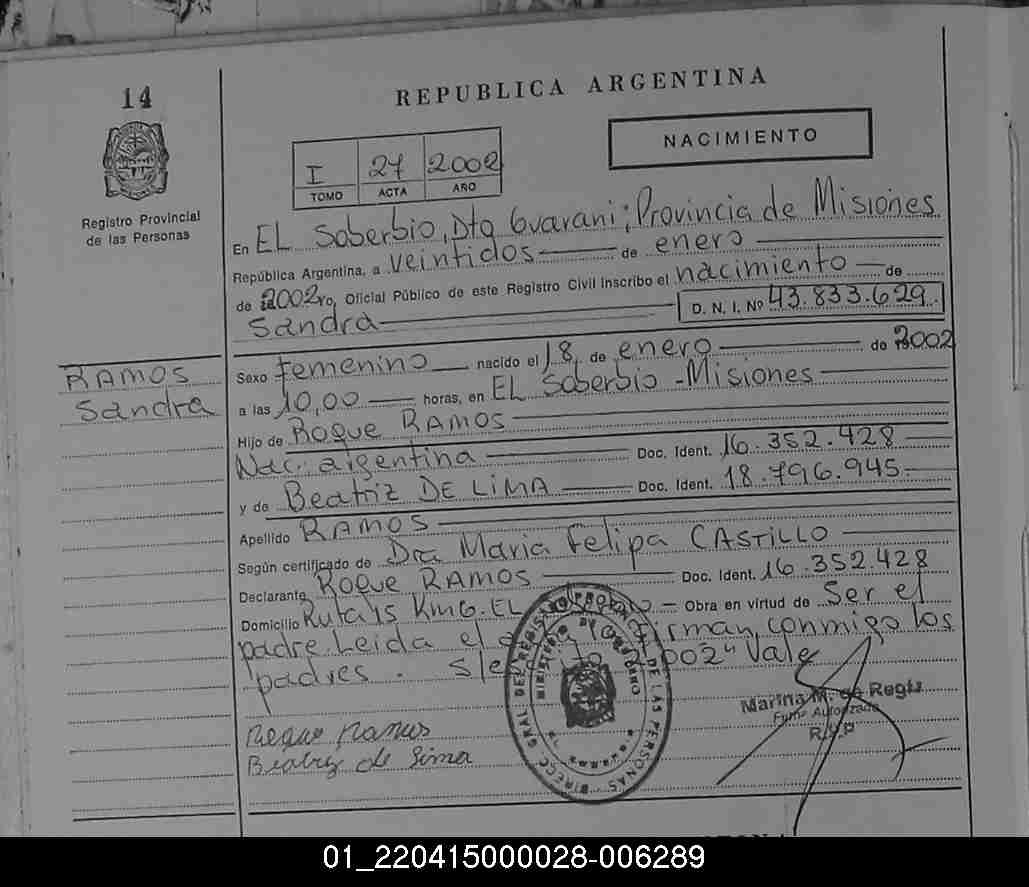 14
REPUBLICA ARGENTINA
NACIMIENTO
I 27 2002
TOMO ACTA AÑO
Registro Provincial
de las Personas
En EL Soberbio, Dto Guarani; Provincia de Misiones
República Argentina, a veintidos de enero
de 2002 yo, Oficial Público de este Registro Civil inscribo el nacimiento de
Sandra D. N. I. Nº 43.833.629.
RAMOS
Sandra
Sexo femenino nacido el 18 de enero de 2002
a las 10,00 horas, en EL Soberbio - Misiones
Hijo de Roque RAMOS
Nac. argentina Doc. Ident. 16.352.428
y de Beatriz DE LIMA Doc. Ident. 18.796.945
Apellido RAMOS
Según certificado de Dra Maria Felipa CASTILLO
Declarante Roque RAMOS Doc. Ident. 16.352.428
Domicilio Ruta 15 Km6. EL Obra en virtud de Ser el
padre Leida el firman conmigo los
padres. S/e 2002" Vale
Marina M. de Regis
Firma Autorizada
R.V.P
Roque Ramos
Beatriz de Lima
DIRECC GRAL DEL REGISTRO PROVINCIAL DE LAS PERSONAS
MINISTERIO DE GOBIERNO
01_220415000028-006289